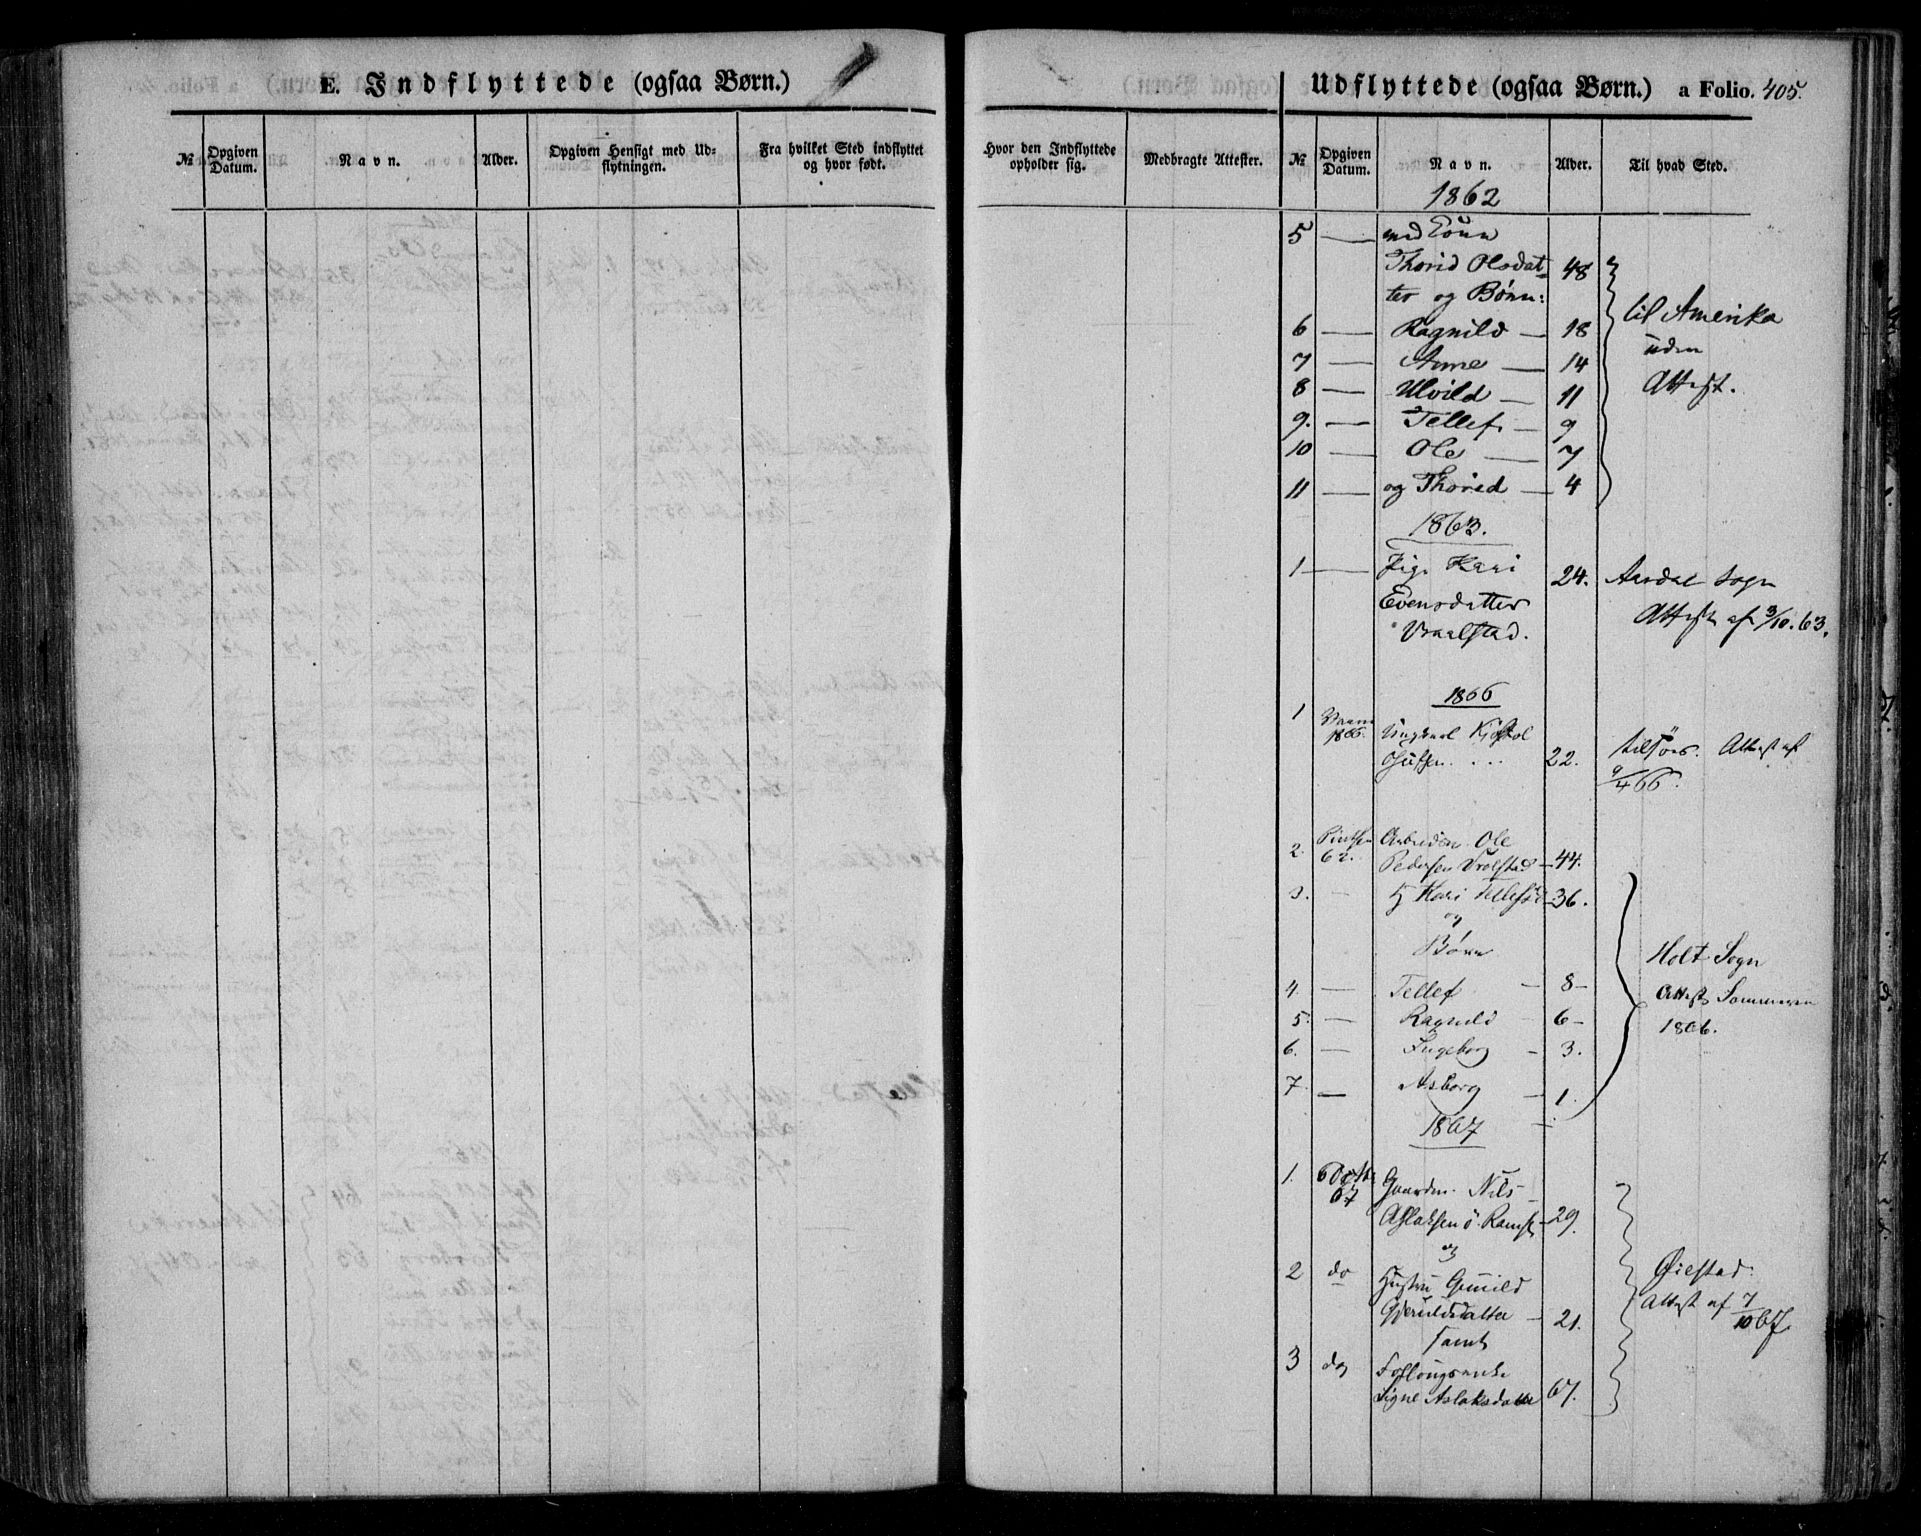 E. Indflyttede (ogsaa Børn.)
Udflyttede (ogsaa Børn.) a Folio. 405.
№ Opgiven Datum. Navn. Alder. Opgiven Hensigt med Udflytningen. Fra hvilket Sted indflyttet og hvor født.
Hvor den Indflyttede opholder sig. Medbragte Attester. № Opgiven Datum. Navn. Alder. Til hvad Sted.
1862
5 — med Konn
Thorid Olsdat- 48
ter og Børn:
6 — Ragnild — 18 til Amerika
7 — Anne — 14 uden
8 — Ulvild — 11 Attest.
9. — Tellef — 9
10 — Ole — 7
11 — og Thorid — 4
1863.
1 — Pige Kari 24. Aardal Sogn
Evensdatter Attest af 3/10.63.
Vraalstad.
1866
1 1866. Ungkarl Kjøstol
22. Attest af
9/4 66.
2. 62. Ole
Pedersen Vrolstad — 44.
3. — Kari Tellefsd 36.
og
Børn Holt Sogn
4. — Tellef — 8 — Attest Sommeren
5. — Ragnild — 6 — 1866.
6. — Ingeborg — 3.
7. — Asborg — 1.
1867
1. 6 Octb 67 Gaardm. Nils
Aslaksen ö. Ramse 29.
og
2 do Hustru Gunild Øiestad.
Gjeruldsdatter — 21. Attest af 7/10 67.
samt
3 do
Signe Aslaksdatter 67.